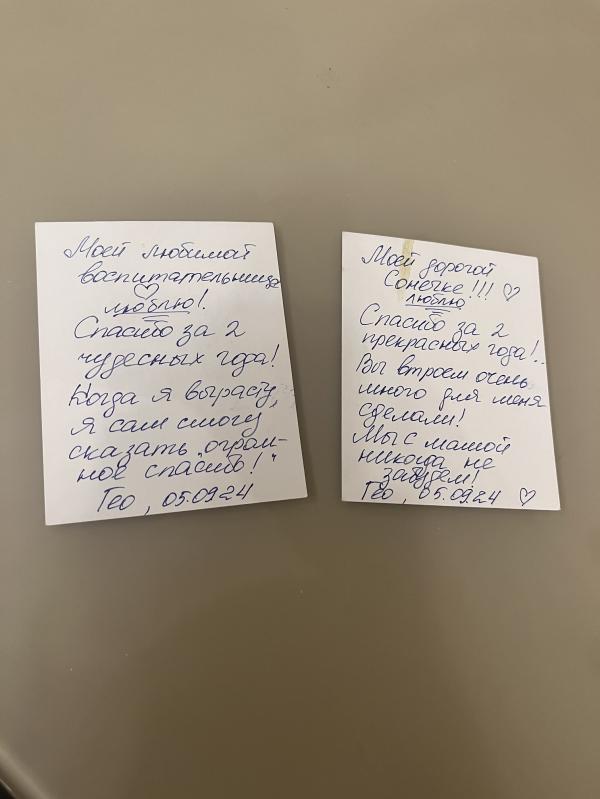 Моей любимой
воспитательнице
♡
люблю!
Спасибо за 2
чудесных года!
Когда я вырасту,
я сам смогу
сказать „огром-
ное спасибо!"
Гео, 05.09.24
Моей дорогой
Сонечке!!! ♡
люблю
Спасибо за 2
прекрасных года!..
Вы втроем очень
много для меня
сделали!
Мы с мамой
никогда не
забудем!
Гео, 05.09.24 ♡